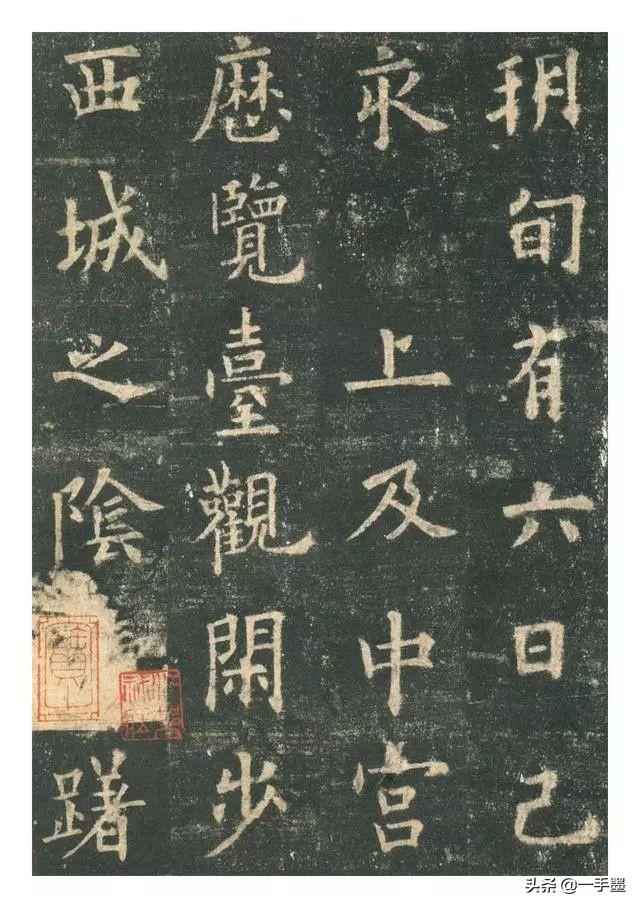 朔旬有六日己
亥上及中宮
歷覽臺觀閑步
西城之陰躇
头条 @一手墨